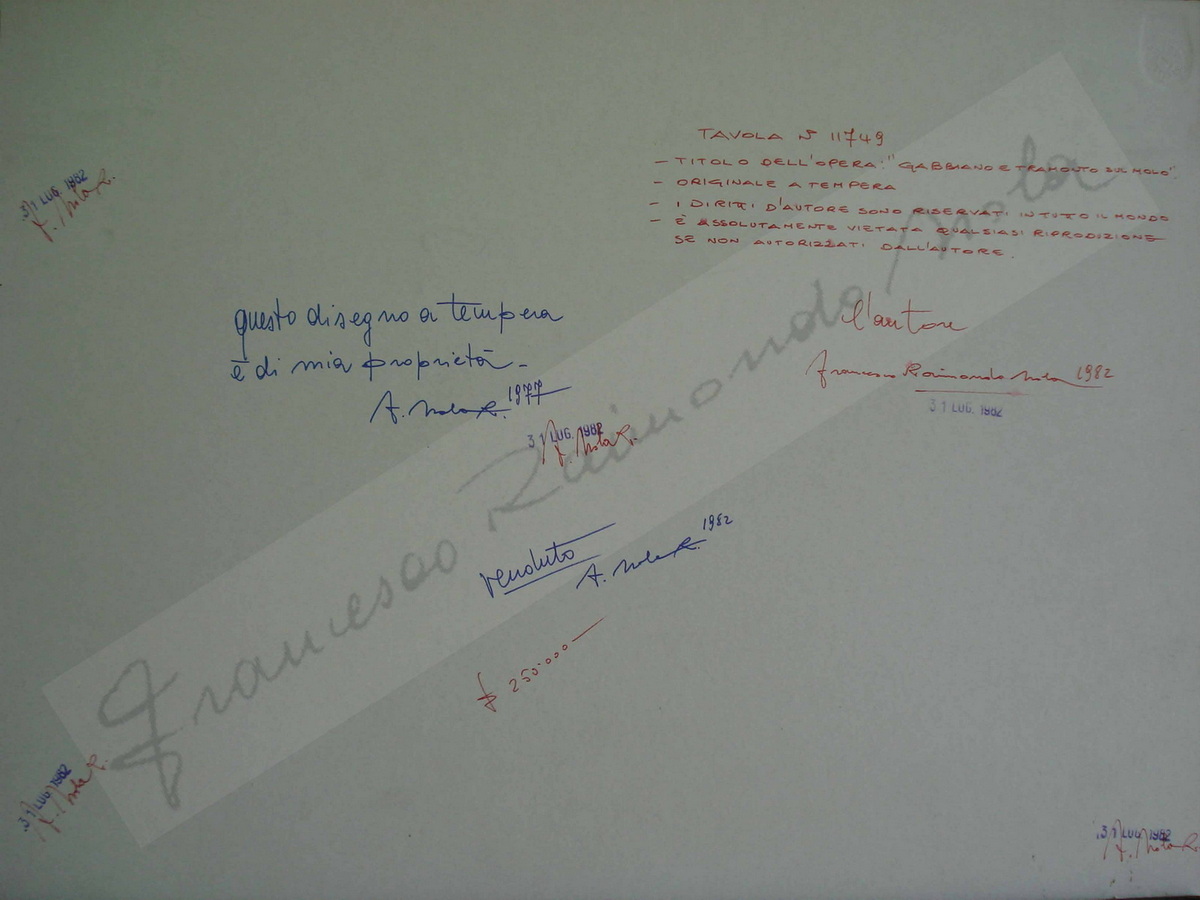 TAVOLA N° 11749
- TITOLO DELL'OPERA: "GABBIANO E TRAMONTO SUL MOLO"
- ORIGINALE A TEMPERA
- I DIRITTI D'AUTORE SONO RISERVATI IN TUTTO IL MONDO
- È ASSOLUTAMENTE VIETATA QUALSIASI RIPRODIZIONE
SE NON AUTORIZZATI DALL'AUTORE.
31 LUG. 1982
F. Nola R.
questo disegno a tempera
è di mia proprietà -
A. Nola R. 1977
l'autore
Francesco Raimondo Nola 1982
31 LUG. 1982
31 LUG. 1982
F. Nola R.
venduto
A. Nola R. 1982
£ 250.000 —
Francesco Raimondo Nola
31 LUG. 1982
F. Nola R.
31 LUG. 1982
F. Nola R.